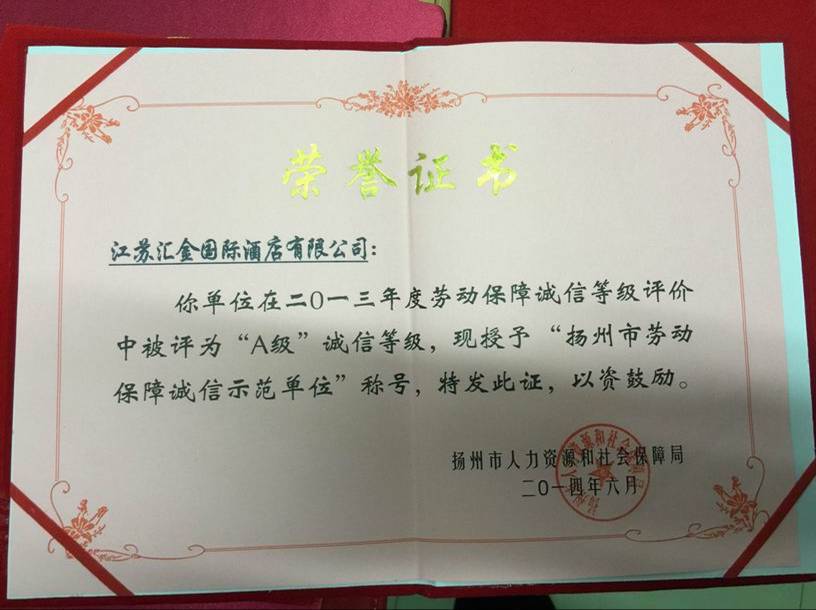 荣誉证书
江苏汇金国际酒店有限公司：
你单位在二〇一三年度劳动保障诚信等级评价
中被评为“A级”诚信等级，现授予“扬州市劳动
保障诚信示范单位”称号，特发此证，以资鼓励。
扬州市人力资源和社会保障局
二〇一四年六月